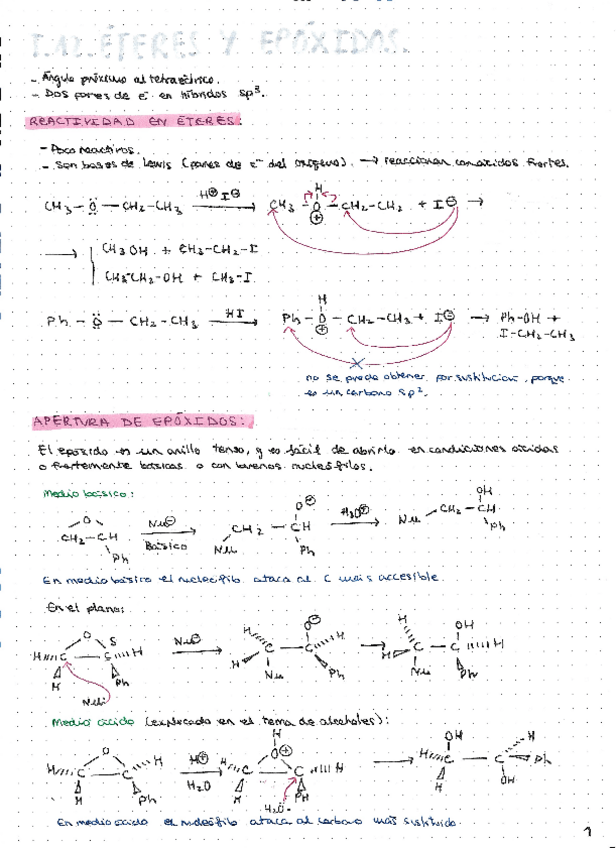 T.12. ÉTERES Y EPÓXIDOS.
- Ángulo próximo al tetraédrico.
- Dos pares de e⁻ en híbridos sp³.
REACTIVIDAD EN ÉTERES:
- Poco reactivos.
- Son bases de Lewis (pares de e⁻ del oxígeno). → reaccionan con ácidos fuertes.
H
CH₃ - O - CH₂ - CH₃ H⊕ I⊖ → CH₃ - O - CH₂ - CH₂ + I⊖ →
⊕
→ CH₃OH + CH₃-CH₂-I
CH₃CH₂-OH + CH₃-I
H
Ph - O - CH₂ - CH₃ HI → Ph - O - CH₂ - CH₃ + I⊖ → Ph-OH +
⊕ I-CH₂-CH₃
no se puede obtener por sustitución, porque
es un carbono sp².
APERTURA DE EPÓXIDOS:
El epóxido es un anillo tenso, y es fácil de abrirlo en condiciones ácidas
o fuertemente básicas o con buenos nucleófilos.
Medio básico:
O O⊖ OH
CH₂ - CH Nu⊖ → CH₂ - CH H₃O⊕ → Nu CH₂ - CH
Ph Básico Nu Ph Ph
En medio básico el nucleófilo ataca al C más accesible.
En el plano:
O S O⊖ H OH
H C - C H Nu⊖ → H C - C H → H C - C H
H Ph H Nu Ph Nu Ph
Nu:
Medio ácido (explicado en el tema de alcoholes):
O H OH H
H C - C H H⊕ → O⊕ → H C - C Ph
H Ph H₂O H C - C H H OH
H Ph
H₂O
En medio ácido el nucleófilo ataca al carbono más sustituido.
1